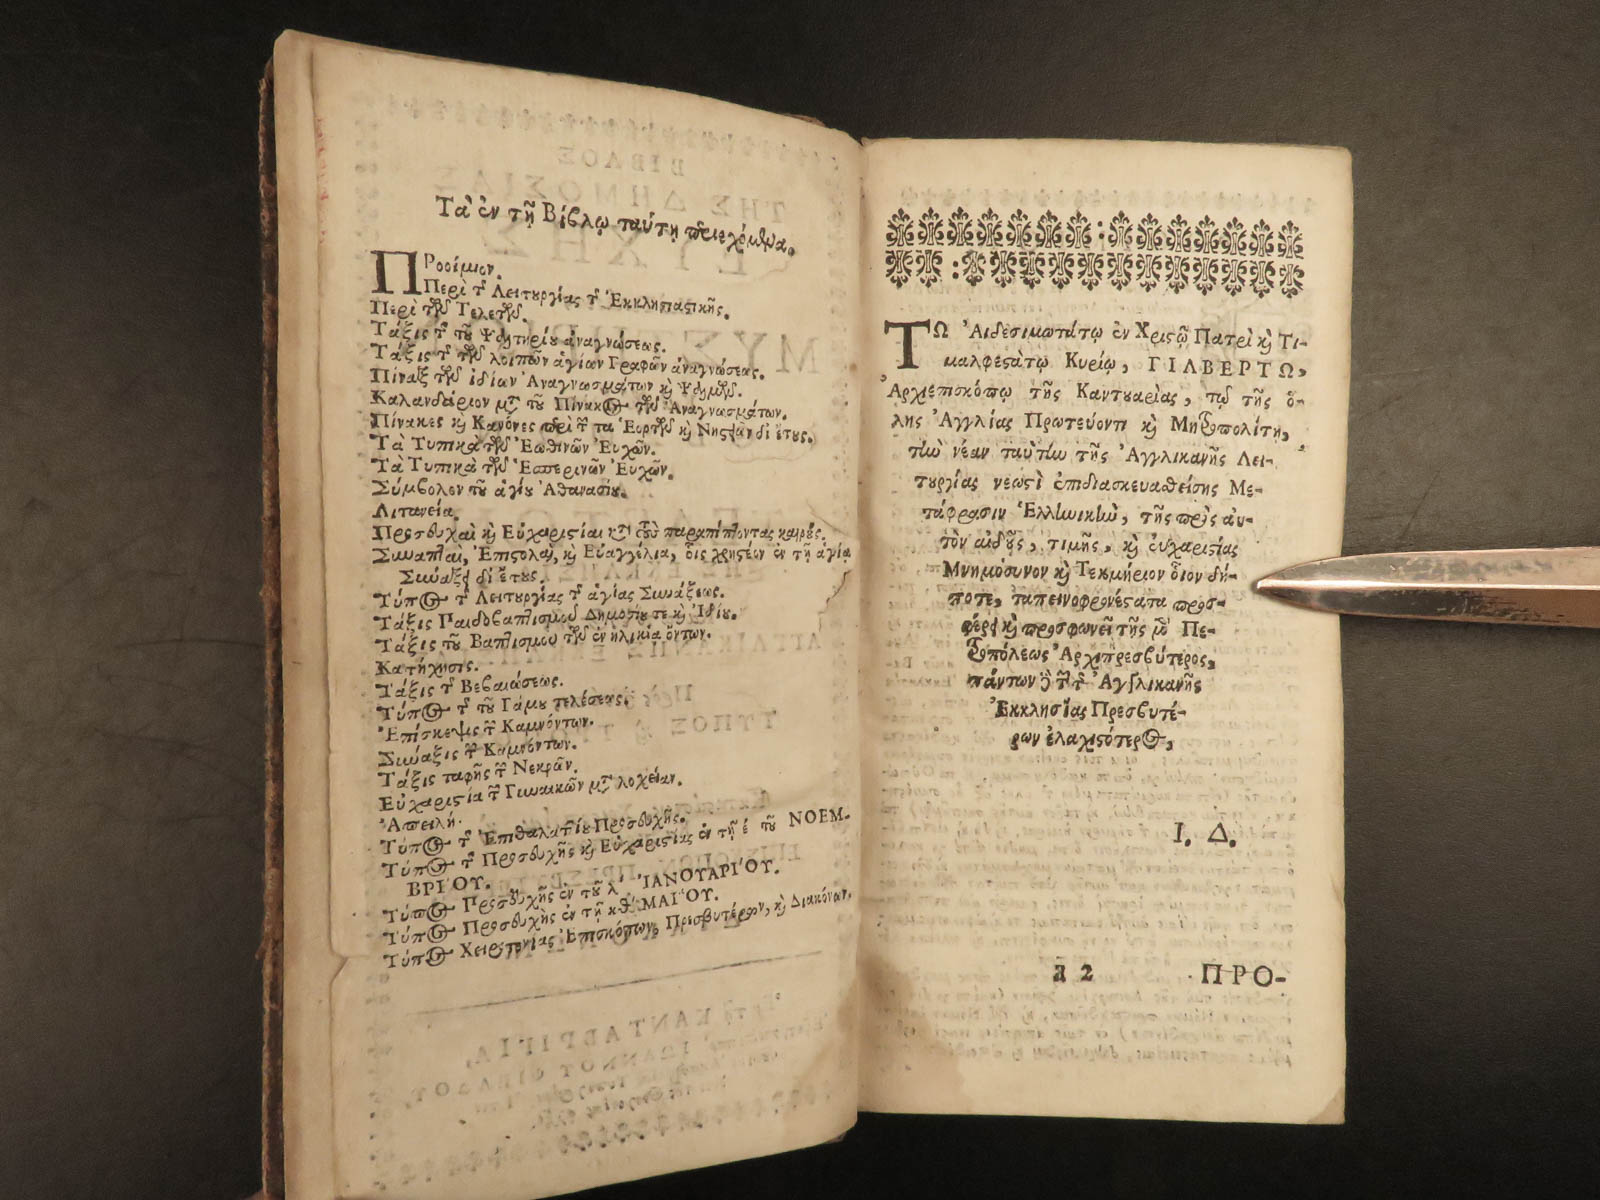 Τὰ ἐν τῇ Βίβλῳ ταύτῃ περιεχόμενα.
ΠΡοοίμιον.
Περὶ τ̃ Λειτυργίας τ̃ Ἐκκλησιαστικῆς.
Περὶ τῶν Τελετῶν.
Τάξις τ̃ τοῦ Ψαλτηρίου ἀναγνώσεως.
Τάξις τ̃ τῶν λοιπῶν ἁγίων Γραφῶν ἀναγνώσεως.
Πίναξ τῶν ἰδίων Ἀναγνωσμάτων καὶ Ψαλμῶν.
Καλανδάριον μετὰ τοῦ Πίνακος τῶν Ἀναγνωσμάτων.
Πίνακες καὶ Κανόνες περὶ τ̃ τα Ἑορτῶν καὶ Νηστειῶν δι' ἔτους.
Τὰ Τυπικὰ τῶν Ἑωθινῶν Ἐυχῶν.
Τὰ Τυπικὰ τῶν Ἑσπερινῶν Ἐυχῶν.
Σύμβολον τοῦ ἁγίου Ἀθανασίου.
Λιτανεία.
Προσευχαὶ καὶ Εὐχαριστίαι κατὰ τοὺς παραπίπτοντας καιρούς.
Συναπταὶ, Ἐπιστολαὶ, καὶ Εὐαγγέλια, οἷς χρηστέον ἐν τῇ ἁγίᾳ
Συνάξει δι' ἔτους.
Τύπος τ̃ Λειτουργίας τ̃ ἁγίας Συνάξεως.
Τάξις Παιδοβαπτισμοῦ Δημοσίου τε καὶ Ἰδίου.
Τάξις τοῦ Βαπτισμοῦ τῶν ἐν ἡλικίᾳ ὄντων.
Κατήχησις.
Τάξις τ̃ Βεβαιώσεως.
Τύπος τ̃ τοῦ Γάμου τελέσεως.
Ἐπίσκεψις τ̃ Καμνόντων.
Σύναξις τ̃ Καμνόντων.
Τάξις ταφῆς τ̃ Νεκρῶν.
Εὐχαριστία τ̃ Γυναικῶν μετὰ λοχείαν.
Ἀπειλή.
Τύπος τ̃ Ἐπιθαλαττίου Προσευχῆς.
Τύπος τ̃ Προσευχῆς καὶ Εὐχαριστίας ἐν τῇ έ τοῦ ΝΟΕΜ-
ΒΡΙ'ΟΥ.
Τύπος Προσευχῆς ἐν τοῦ λ' ἸΑΝΟΥΑΡΙ'ΟΥ.
Τύπος Προσευχῆς ἐν τῇ κθ' ΜΑΙ'ΟΥ.
Τύπος Χειροτονίας Ἐπισκόπων, Πρεσβυτέρων, καὶ Διακόνων.
ΤΩ Ἀιδεσιμωτάτῳ ἐν Χριστῷ Πατρὶ καὶ Τι-
μαλφεστάτῳ Κυρίῳ, ΓΙΛΒΕΡΤΩ,
Ἀρχιεπισκόπῳ τῆς Καντυαρίας, τῷ τῆς ὅ-
λης Ἀγγλίας Πρωτεύοντι καὶ Μητροπολίτῃ,
τὴν νέαν ταύτην τῆς Ἀγγλικανῆς Λει-
τυργίας νεωστὶ ἐπιδιασκευασθείσης Με-
τάφρασιν Ἑλληνικὴν, τῆς πρὸς αὐ-
τὸν αἰδοῦς, τιμῆς, καὶ εὐχαριστίας
Μνημόσυνον καὶ Τεκμήριον οἷον δή-
ποτε, ταπεινοφρονέστατα προσ-
φέρει καὶ προσφωνεῖ τῆς μὲν Πε-
τροπόλεως Ἀρχιπρεσβύτερος,
πάντων δὲ τ̃ τ̃ Ἀγγλικανῆς
Ἐκκλησίας Πρεσβυτέ-
ρων ἐλαχιστότερος,
Ι. Δ.
a 2 ΠΡΟ-